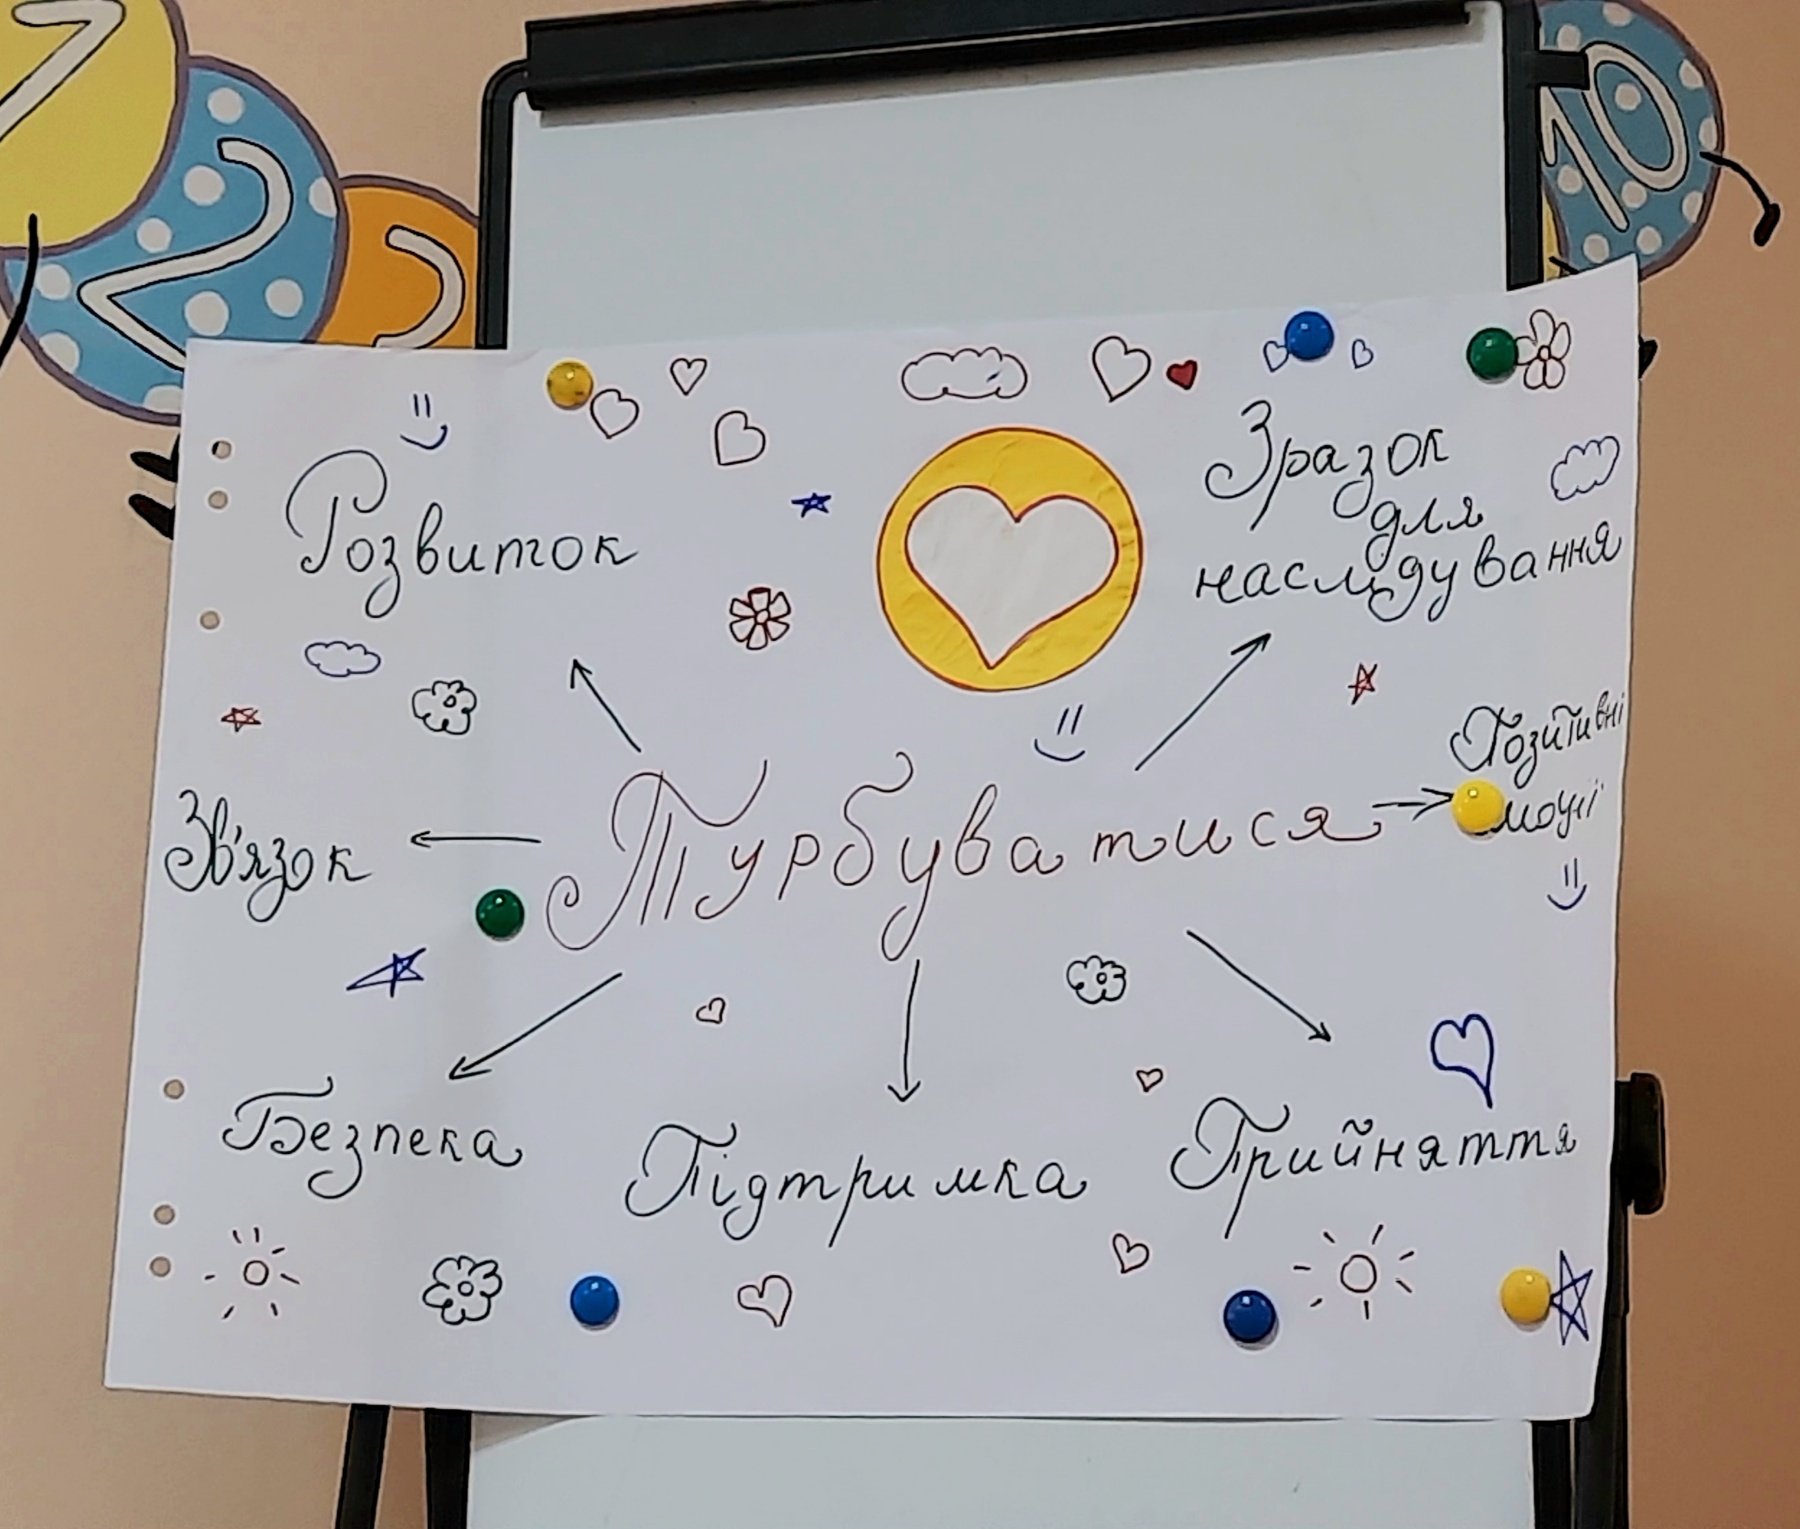 1
2
3
10
Розвиток
Зразок
для
наслідування
Позитивні
моції
Турбуватися
Зв'язок
Безпека
Підтримка
Прийняття